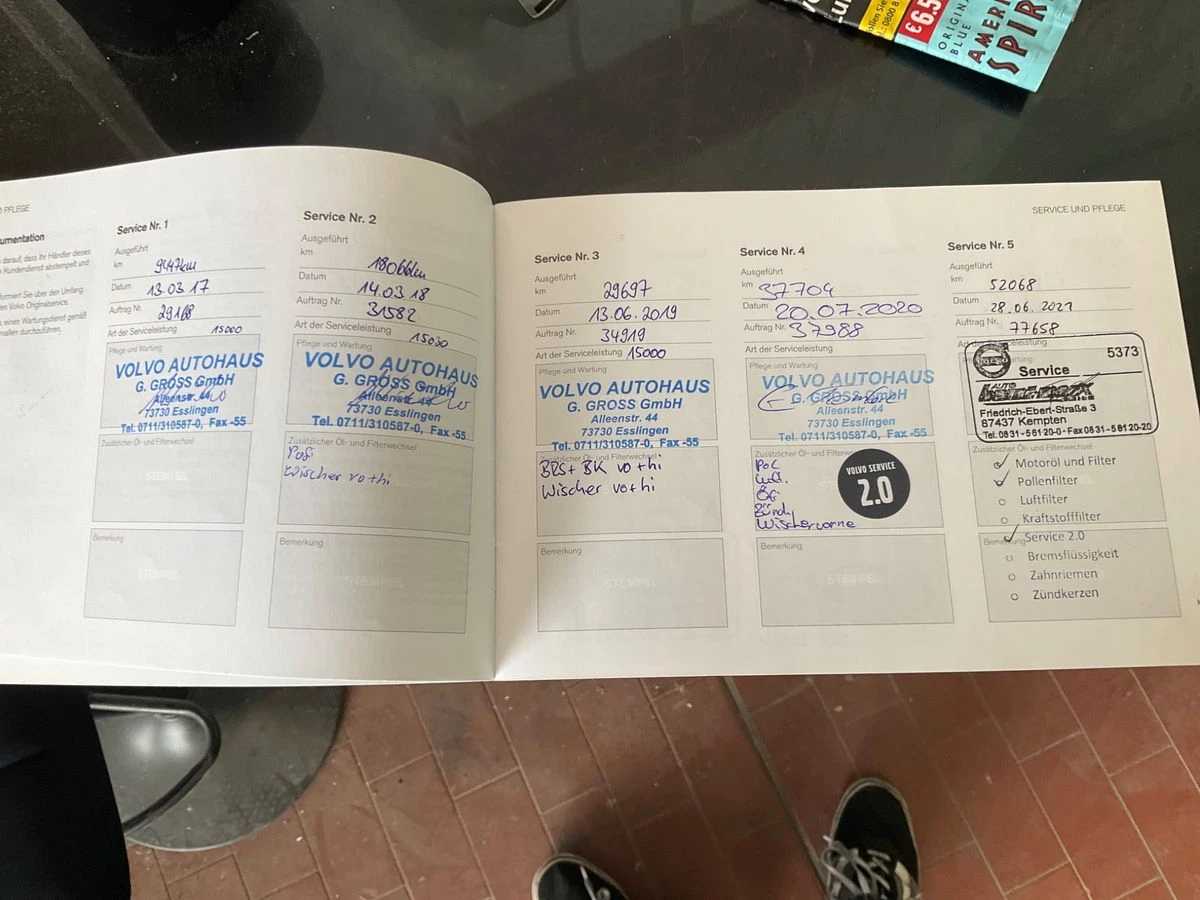 €6.5
ORIGINA
BLUE
AMERI
SPIR
PFLEGE
umentation
darauf, dass Ihr Händler dieses
Kundendienst abstempelt und
formiert Sie über den Umfang
en Volvo Originalservice.
einen Wartungsdienst gemäß
vallen durchzuführen.
Service Nr. 1
Ausgeführt
km 9447km
Datum 13.03 17
Auftrag Nr. 29168
Art der Serviceleistung 15000
Pflege und Wartung
VOLVO AUTOHAUS
G. GROSS GmbH
Alleenstr. 44
73730 Esslingen
Tel. 0711/310587-0, Fax -55
Zusätzlicher Öl- und Filterwechsel
STEMPEL
Bemerkung
STEMPEL
Service Nr. 2
Ausgeführt
km 18066km
Datum 14.03 18
Auftrag Nr. 31582
Art der Serviceleistung 15030
Pflege und Wartung
VOLVO AUTOHAUS
G. GROSS GmbH
Alleenstr. 44
73730 Esslingen
Tel. 0711/310587-0, Fax -55
Zusätzlicher Öl- und Filterwechsel
Wischer vo+hi
Bemerkung
STEMPEL
SERVICE UND PFLEGE
Service Nr. 3
Ausgeführt
km 29697
Datum 13.06.2019
Auftrag Nr. 34919
Art der Serviceleistung 15000
Pflege und Wartung
VOLVO AUTOHAUS
G. GROSS GmbH
Alleenstr. 44
73730 Esslingen
Tel. 0711/310587-0, Fax -55
Zusätzlicher Öl- und Filterwechsel
BRS+ BK vo+hi
Wischer vo+hi
Bemerkung
STEMPEL
Service Nr. 4
Ausgeführt
km 37704
Datum 20.07.2020
Auftrag Nr. 37988
Art der Serviceleistung
Pflege und Wartung
VOLVO AUTOHAUS
G. GROSS GmbH
Alleenstr. 44
73730 Esslingen
Tel. 0711/310587-0, Fax -55
Zusätzlicher Öl- und Filterwechsel
Pol.
Luft.
Öfi
Zünd.
Wischer vorne
VOLVO SERVICE
2.0
Bemerkung
STEMPEL
Service Nr. 5
Ausgeführt
km 52068
Datum 28.06.2021
Auftrag Nr. 77658
Art der Serviceleistung
5373
Service
AUTO
Friedrich-Ebert-Straße 3
87437 Kempten
Tel. 0831-56120-0 - Fax 0831-56120-20
Zusätzlicher Öl- und Filterwechsel
Motoröl und Filter
Pollenfilter
Luftfilter
Kraftstofffilter
Bemerkung
Service 2.0
Bremsflüssigkeit
Zahnriemen
Zündkerzen